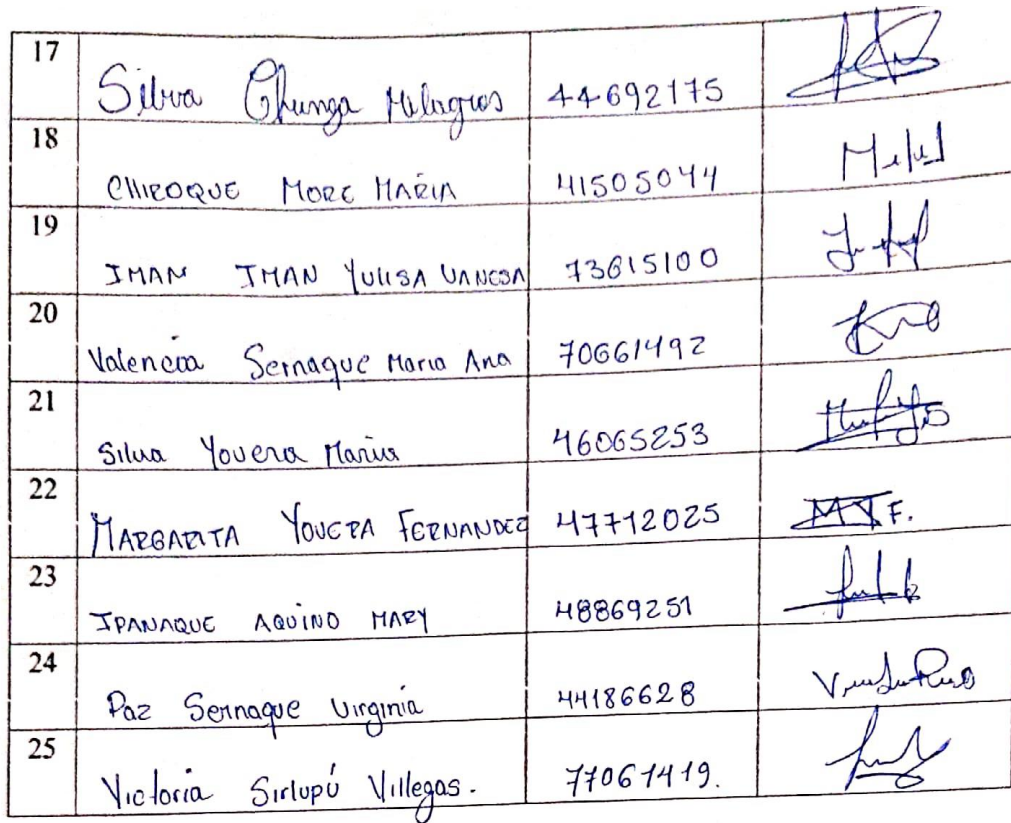 17 Silva Chunga Milagros 44692175
18 CHIROQUE MORE MARÍA 41505044
19 IMAN IMAN YULISA VANESSA 73615100
20 Valencia Sernaque Maria Ana 70661492
21 Silva Yovera Maria 46065253
22 MARGARITA YOVERA FERNANDEZ 47712025 MYF.
23 IPANAQUE AQUINO MARY 48869251
24 Paz Sernaque Virginia 44186628
25 Victoria Sirlupú Villegas. 77061419.